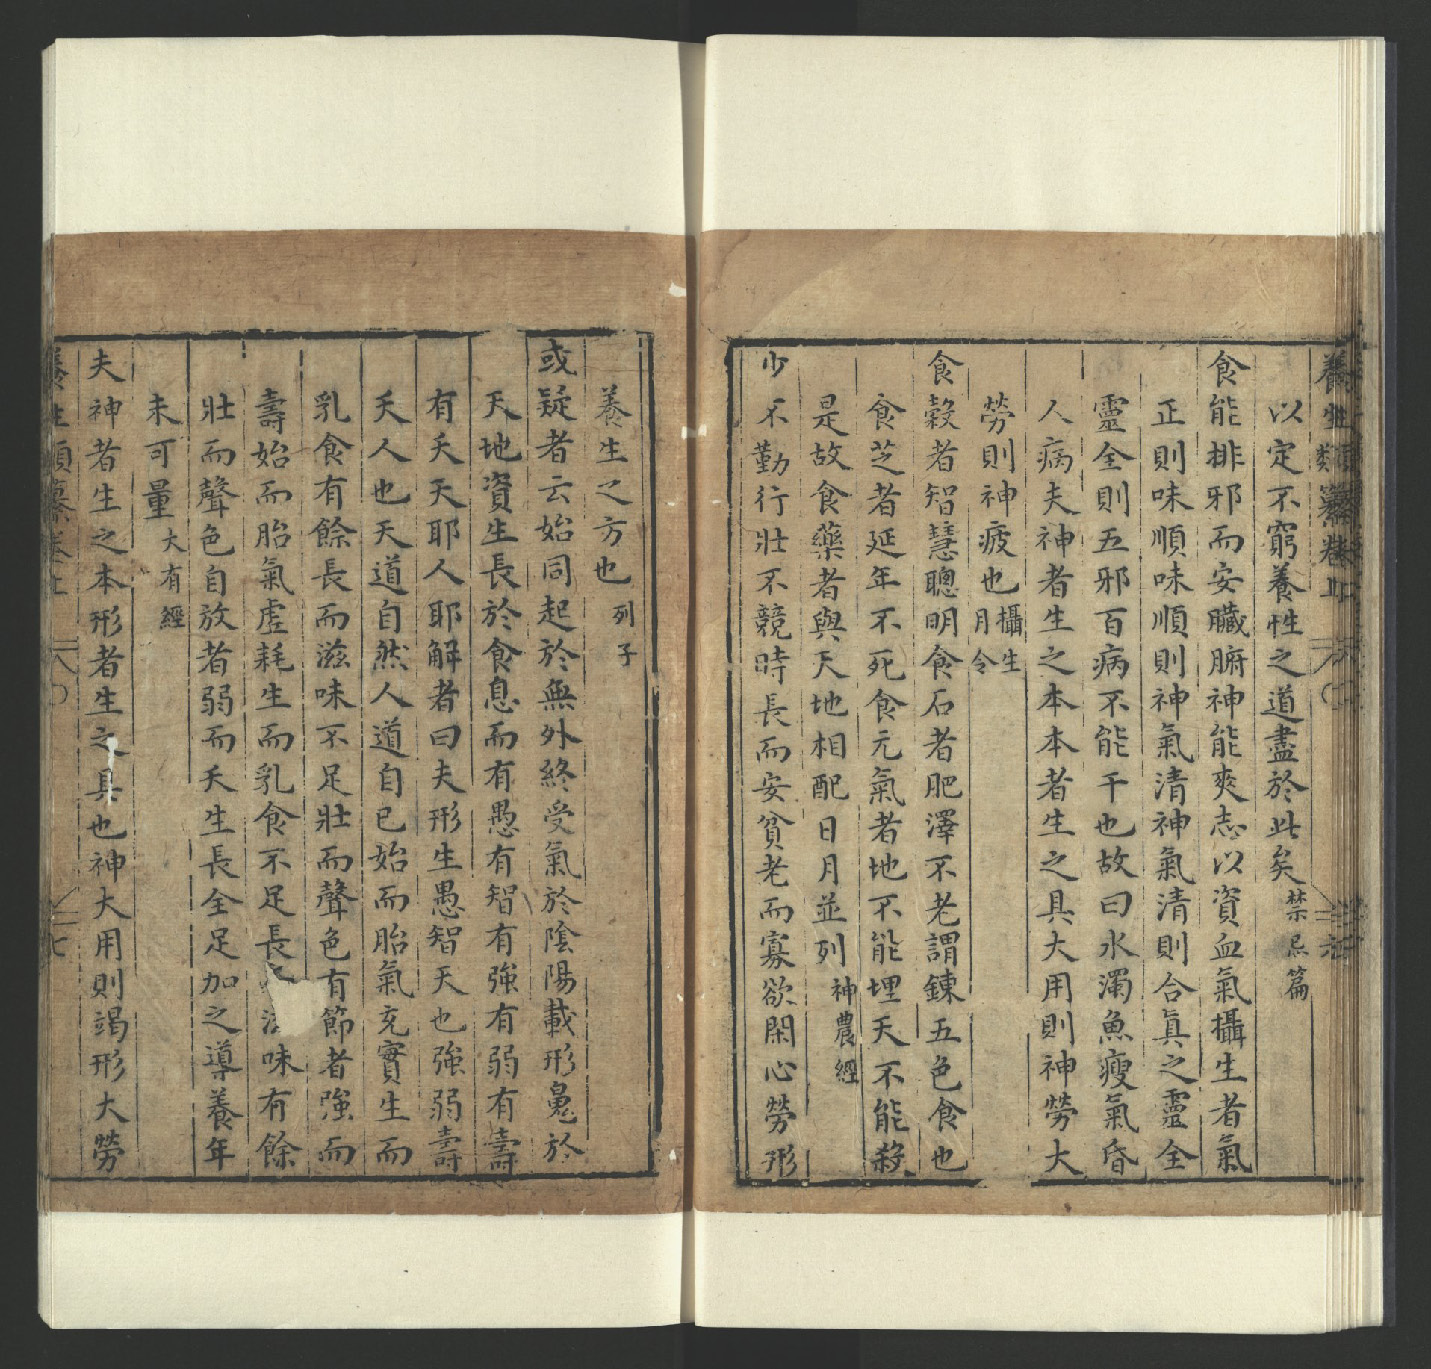 養生類纂卷上
以定不窮養性之道盡於此矣禁忌篇
食能排邪而安臟腑神能爽志以資血氣攝生者氣
正則味順味順則神氣清神氣清則合眞之靈全
靈全則五邪百病不能干也故曰水濁魚瘦氣昏
人病夫神者生之本本者生之具大用則神勞大
勞則神疲也攝生月令
食穀者智慧聰明食石者肥澤不老謂鍊五色食也
食芝者延年不死食元氣者地不能埋天不能殺
是故食藥者與天地相配日月並列神農經
少不勤行壯不競時長而安貧老而寡欲閑心勞形
養生之方也列子
或疑者云始同起於無外終受氣於陰陽載形䰟於
天地資生長於食息而有愚有智有強有弱有壽
有夭天耶人耶解者曰夫形生愚智天也強弱壽
夭人也天道自然人道自已始而胎氣充實生而
乳食有餘長而滋味不足壯而聲色有節者強而
壽始而胎氣虛耗生而乳食不足長味有餘
壯而聲色自放者弱而夭生長全足加之導養年
未可量大有經
夫神者生之本形者生之具也神大用則竭形大勞
七